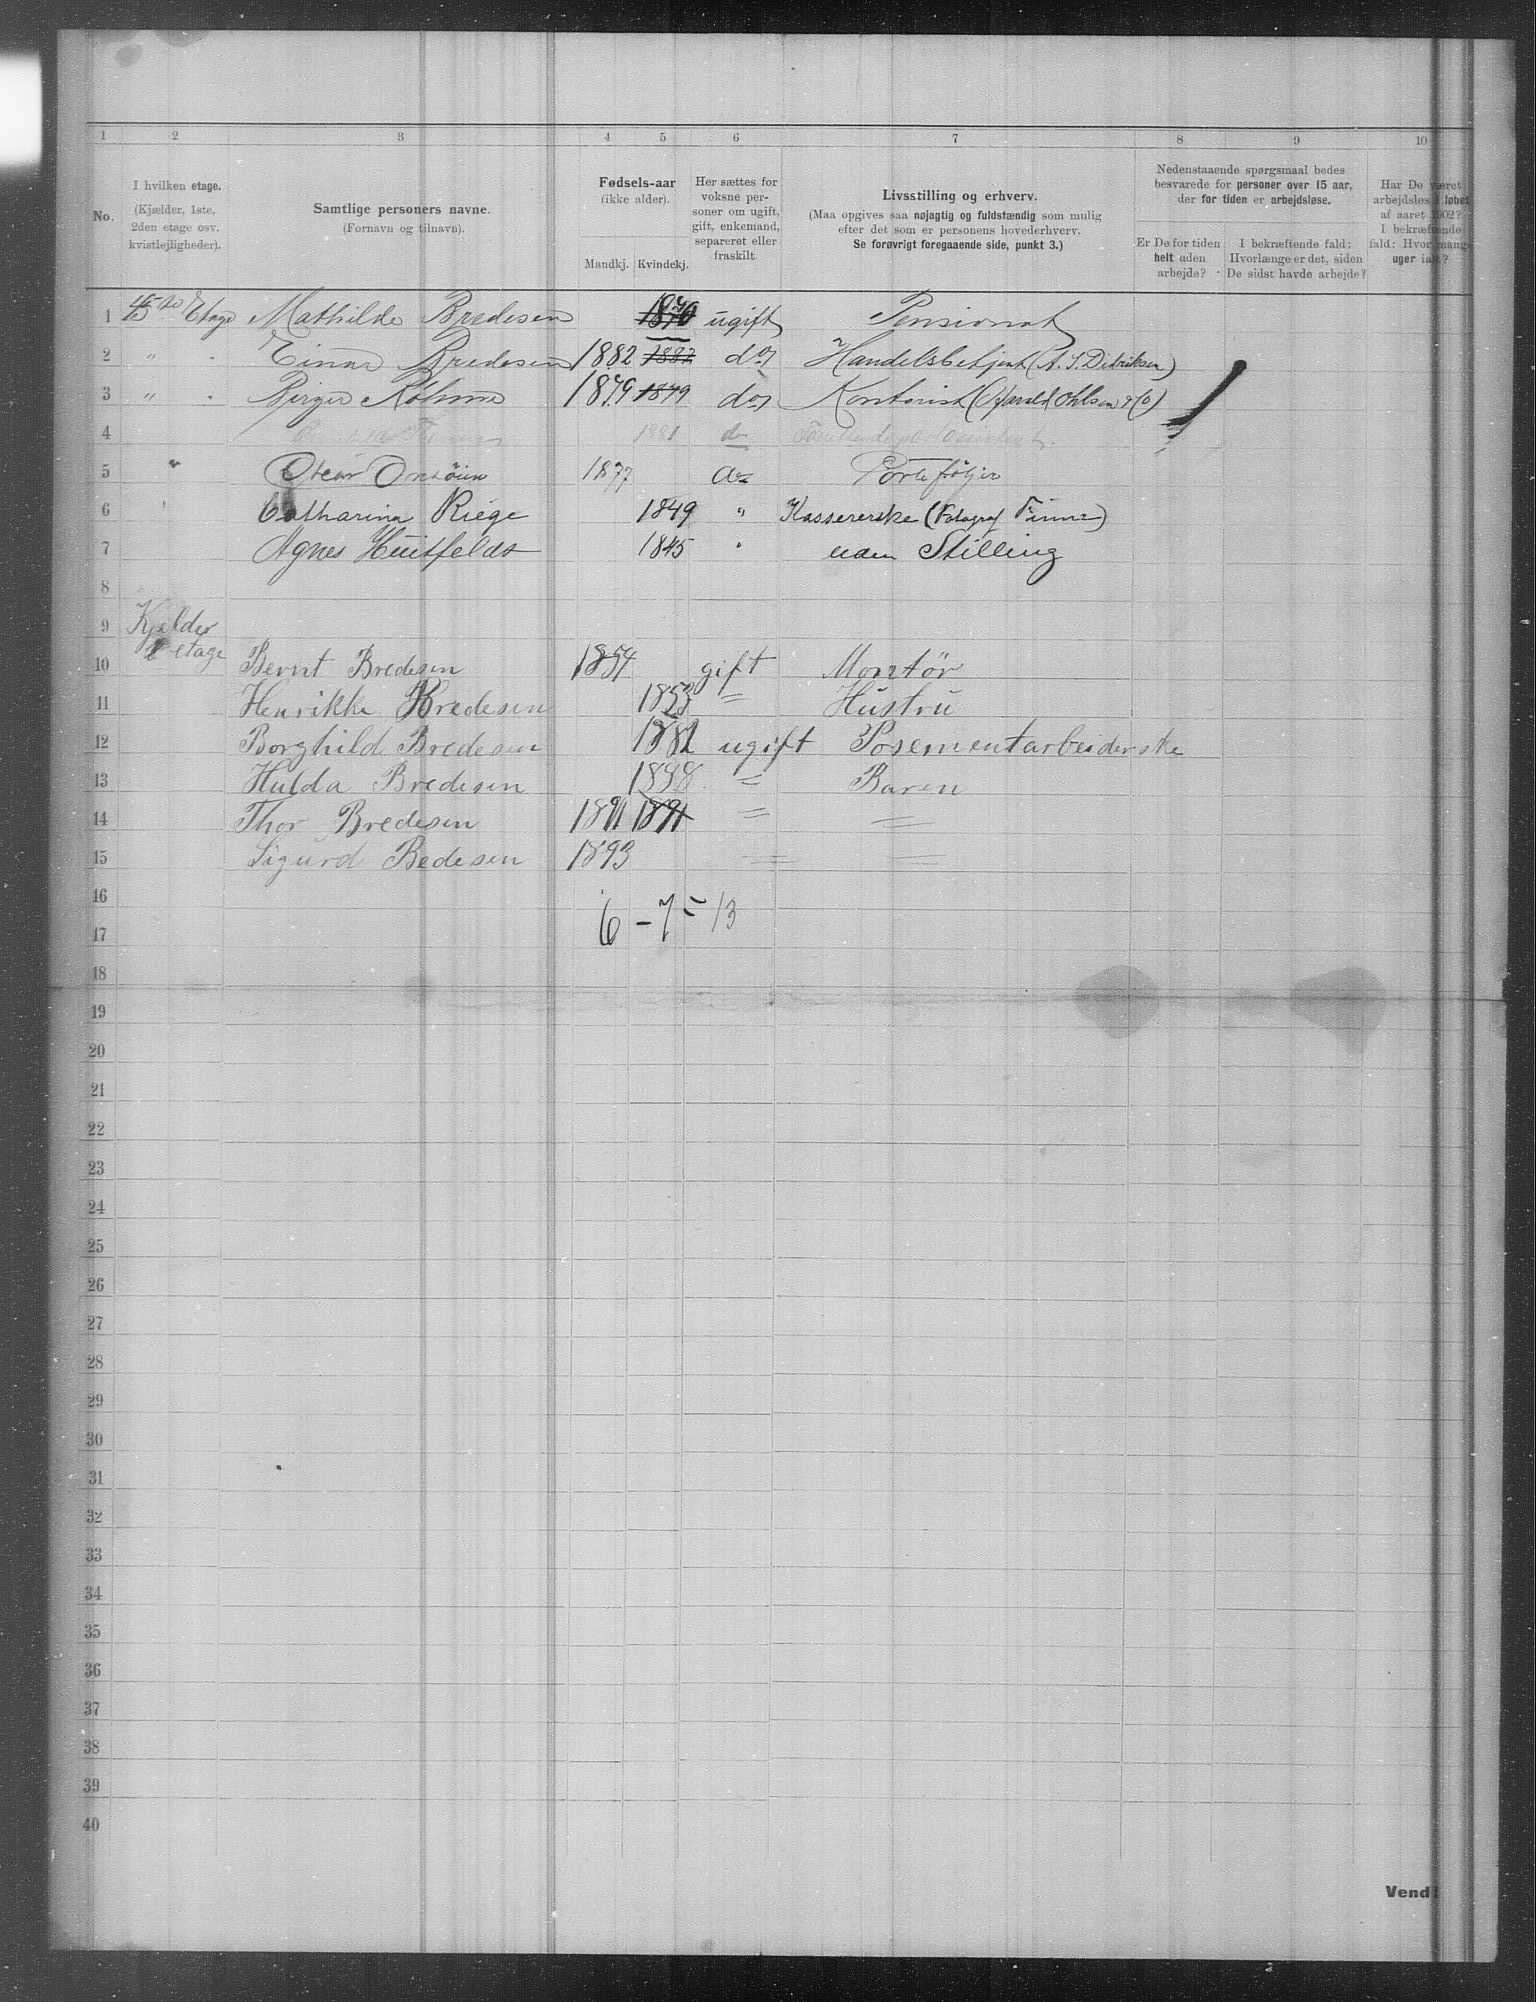 1 2 3 4 5 6 7 8 9 10
No.
I hvilken etage.
(Kjælder, 1ste,
2den etage osv.
kvistlejligheder).
Samtlige personers navne.
(Fornavn og tilnavn).
Fødsels-aar
(ikke alder).
Mandkj. Kvindekj.
Her sættes for
voksne per-
soner om ugift,
gift, enkemand,
separeret eller
fraskilt.
Livsstilling og erhverv.
(Maa opgives saa nøjagtig og fuldstændig som mulig
efter det som er personens hovederhverv.
Se forøvrigt foregaaende side, punkt 3.)
Nedenstaaende spørgsmaal bedes
besvarede for personer over 15 aar,
der for tiden er arbejdsløse.
Er De for tiden
helt uden
arbejde?
I bekræftende fald:
Hvorlænge er det, siden
De sidst havde arbejde?
Har De været
arbejdsløs i løbet
af aaret 1902?
I bekræftende
fald: Hvor mange
uger ialt?
1 Etage Mathilde Bredesen 1870 ugift Pensionat
2 " Einar Bredesen 1882 1882 do Handelsbetjent (A. S. Didriksen)
3 " Birger 1879 1879 do Kontorist ( Ohlsen & Co)
4 1881 do
5 " Oscar 1877 do Porteføljer
6 " Catharina Riege 1849 " Kassererske (Fotograf Finne)
7 Agnes Huitfeldt 1845 " uden Stilling
8
9 Kjelder
etage
10 Bernt Bredesen 1854 gift Montør
11 Henrikke Bredesen 1853 " Hustru
12 Borghild Bredesen 1882 ugift Posementarbeiderske
13 Hulda Bredesen 1888 " Baren
14 Thor Bredesen 1891 1891 " "
15 Sigurd Bedesen 1893 " "
16
6 - 7 = 13
17
18
19
20
21
22
23
24
25
26
27
28
29
30
31
32
33
34
35
36
37
38
39
40
Vend!